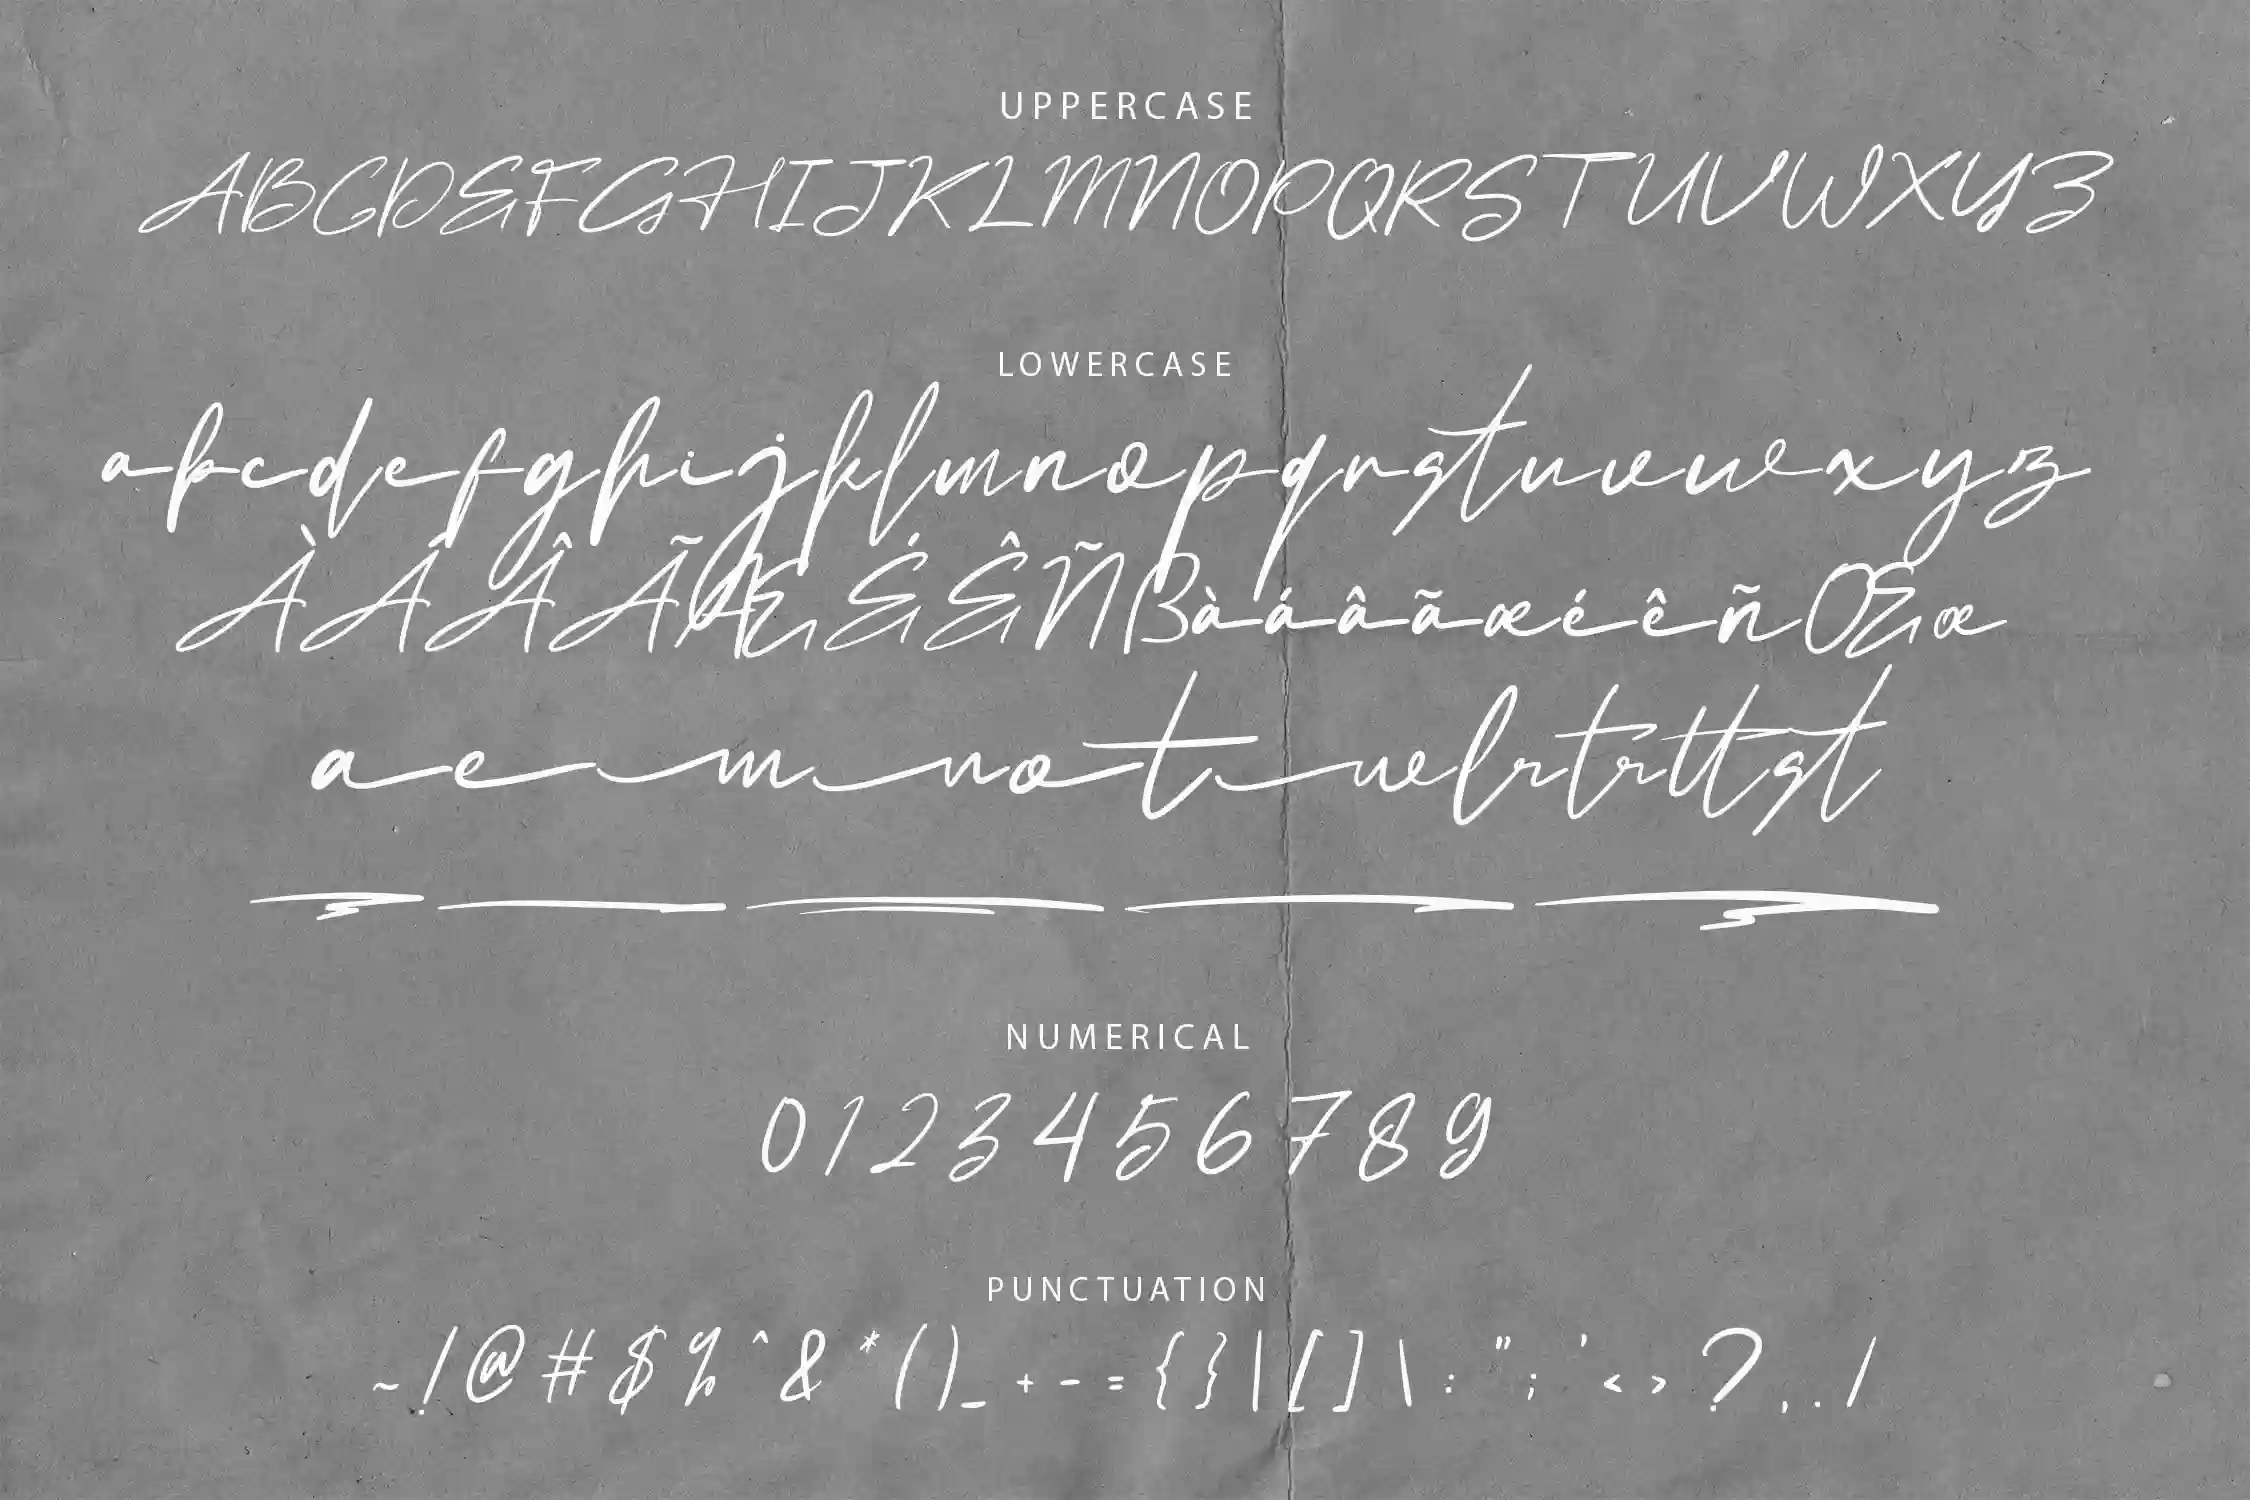 UPPERCASE
ABCDEFGHIJKLMNOPQRSTUVWXYZ
LOWERCASE
abcdefghijklmnopqrstuvwxyz
ÀÁÂÃÆÉÊÑßàáâãæéêñŒœ
aemnotwlrtrttst
NUMERICAL
0123456789
PUNCTUATION
~!@#$%^&*()_+-={}|[]\:";'<>?,./